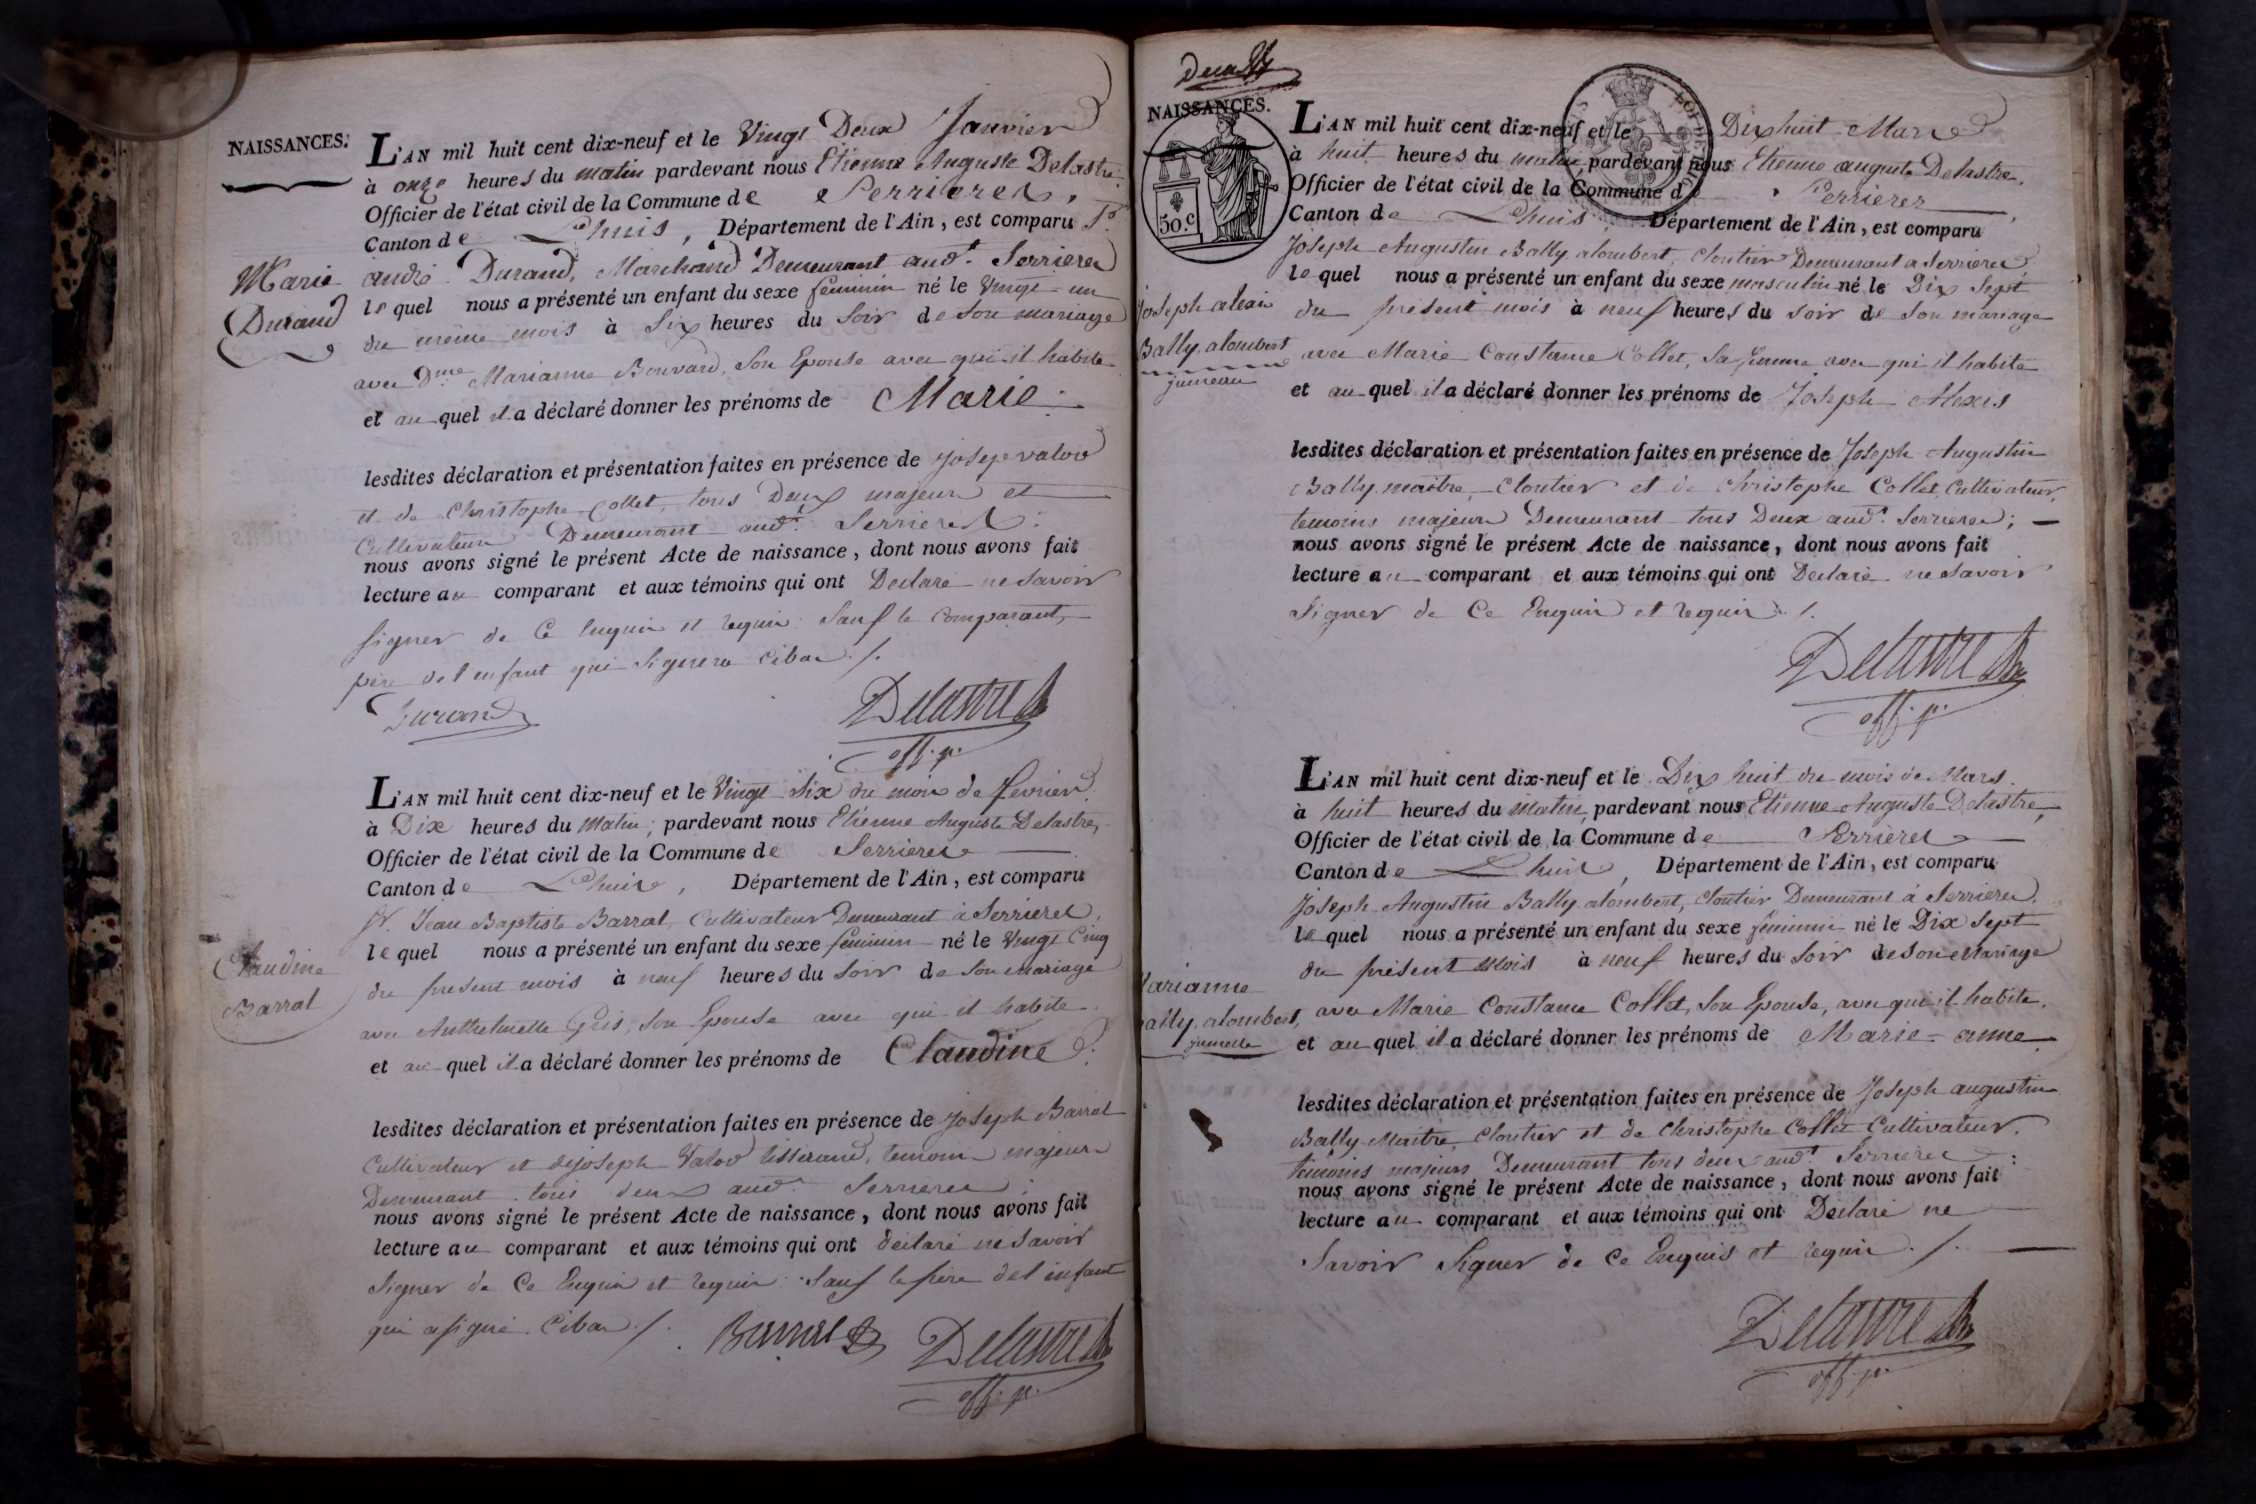 NAISSANCES.
L'AN mil huit cent dix-neuf et le Vingt Deux Janvier
à onze heures du matin pardevant nous Etienne Auguste Delastre
Officier de l'état civil de la Commune de Serrieres,
Canton de Lhuis, Département de l'Ain, est comparu Sr.
andré Durand, Marchand Demeurant aud.t Serrieres
lequel nous a présenté un enfant du sexe féminin né le Vingt-un
du même mois à Six heures du Soir de Son mariage
avec Dme Marianne Bonvard, Son Epouse avec qui il habite
et au quel il a déclaré donner les prénoms de Marie
Marie
Durand
lesdites déclaration et présentation faites en présence de Josep valov
et de Christophe Collet, tous Deux majeurs et
Cultivateurs Demeurant aud.t Serrieres :
nous avons signé le présent Acte de naissance, dont nous avons fait
lecture au comparant et aux témoins qui ont Déclaré ne Savoir
Signer de Ce Enquis et requis Sauf le Comparant,
père de l'enfant qui Signera cibas ./.
Durand
Delastre
off. p.
L'AN mil huit cent dix-neuf et le Vingt Six du mois de fevrier
à Dix heures du Matin, pardevant nous Etienne Auguste Delastre,
Officier de l'état civil de la Commune de Serrieres
Canton de Lhuis, Département de l'Ain, est comparu
Sr. Jean Baptiste Barral, Cultivateur Demeurant à Serrieres,
lequel nous a présenté un enfant du sexe féminin né le Vingt Cinq
du présent mois à neuf heures du Soir de Son mariage
avec Anthelmette Son Epouse avec qui il habite
et au quel il a déclaré donner les prénoms de Claudine
Claudine
Barral
lesdites déclaration et présentation faites en présence de Joseph Barral
Cultivateur et de Joseph Valov tisserand, temoins majeurs
Demeurant tous deux aud.t Serrieres ;
nous avons signé le présent Acte de naissance, dont nous avons fait
lecture au comparant et aux témoins qui ont déclaré ne Savoir
Signer de Ce Enquis et requis Sauf le père de l'enfant
qui a signé Cibas ./.
Barral Delastre
off. p.
NAISSANCES.
50.c
L'AN mil huit cent dix-neuf et le Dix huit Mars
à huit heures du matin, pardevant nous Etienne auguste Delastre,
Officier de l'état civil de la Commune de Serrieres,
Canton de Lhuis Département de l'Ain, est comparu
Joseph Augustin Bally alombert, Cloutier Demeurant à Serrieres
lequel nous a présenté un enfant du sexe masculin né le Dix Sept
du présent mois à neuf heures du Soir de Son mariage
avec Marie Constance Collet, Sa femme avec qui il habite
et au quel il a déclaré donner les prénoms de Joseph Alexis
Joseph alexis
Bally, alombert
jumeau
lesdites déclaration et présentation faites en présence de Joseph Augustin
Bally maitre Cloutier et de Christophe Collet Cultivateur,
temoins majeurs Demeurant tous Deux aud.t Serrieres ;
nous avons signé le présent Acte de naissance, dont nous avons fait
lecture au comparant et aux témoins qui ont Déclaré ne Savoir
Signer de Ce Enquis et requis ./.
Delastre
off. p.
L'AN mil huit cent dix-neuf et le Dix huit du mois de Mars
à huit heures du Matin, pardevant nous Etienne Auguste Delastre,
Officier de l'état civil de la Commune de Serrieres
Canton de Lhuis, Département de l'Ain, est comparu
Joseph Augustin Bally alombert, Cloutier Demeurant à Serrieres
lequel nous a présenté un enfant du sexe féminin né le Dix Sept
du présent Mois à neuf heures du Soir de Son Mariage
avec Marie Constance Collet, Son Epouse, avec qui il habite.
et au quel il a déclaré donner les prénoms de Marie-anne
arianne
ally, alombert,
jumelle
lesdites déclaration et présentation faites en présence de Joseph augustin
Bally Maitre Cloutier et de Christophe Collet Cultivateur,
temoins majeurs Demeurant tous deux aud.t Serrieres :
nous avons signé le présent Acte de naissance, dont nous avons fait
lecture au comparant et aux témoins qui ont Déclaré ne
Savoir Signer de Ce Enquis et requis ./.
Delastre
off. p.